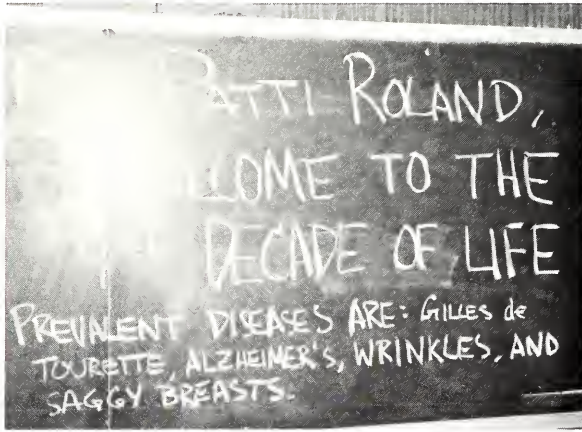 PATTI ROLAND,
TO THE
DECADE OF LIFE
PREVALENT DISEASES ARE: GILLES de
TOURETTE, ALZHEIMER'S, WRINKLES, AND
SAGGY BREASTS.